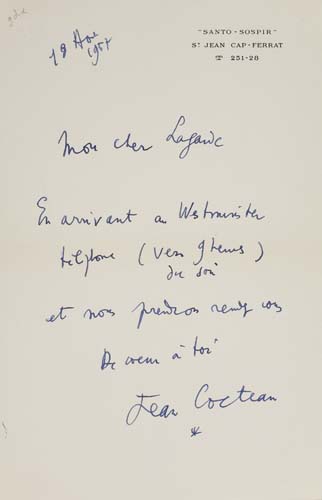 "SANTO-SOSPIR"
ST JEAN CAP-FERRAT
251-28
18
Mon cher Lagarde
En arrivant au Westminster
téléphone (vers 9 heures)
du soir
et nous prendrons rendez vous
De coeur à toi
Jean Cocteau
*